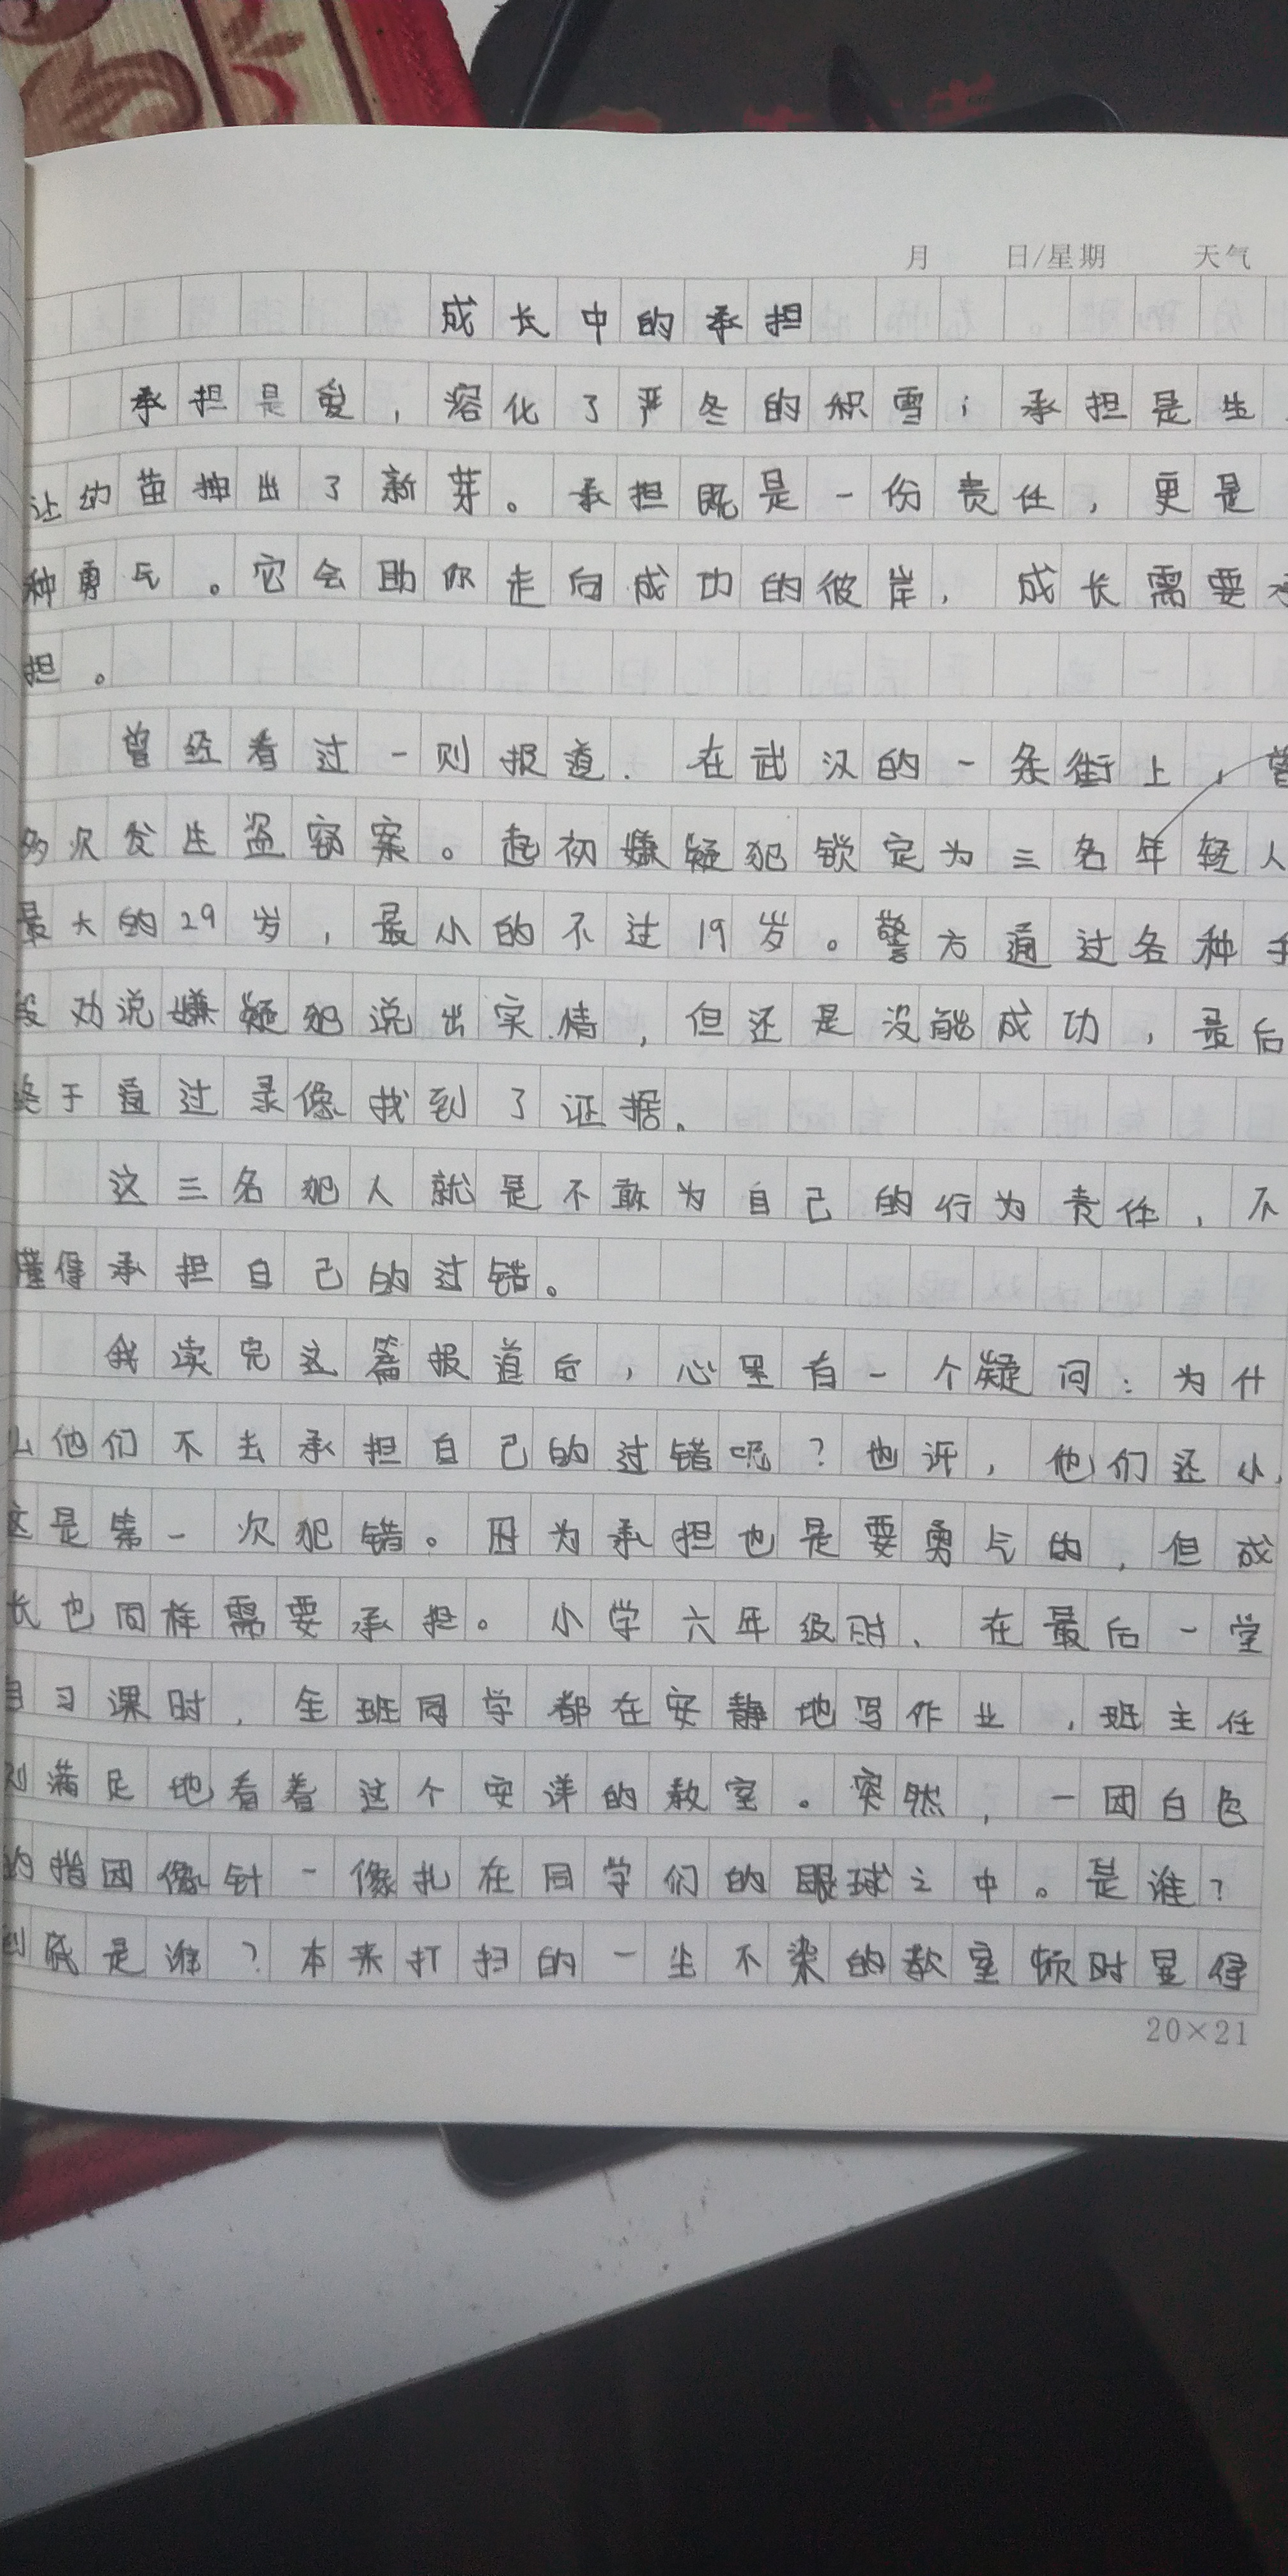 月 日/星期 天气
成长中的承担
承担是爱，溶化了严冬的积雪；承担是生
让幼苗抽出了新芽。承担既是一份责任，更是
种勇气。它会助你走向成功的彼岸，成长需要承
担。
曾经看过一则报道．在武汉的一条街上，曾
多次发生盗窃案。起初嫌疑犯锁定为三名年轻人
最大的29岁，最小的不过19岁。警方通过各种手
段劝说嫌疑犯说出实情，但还是没能成功，最后
终于通过录像找到了证据．
这三名犯人就是不敢为自己的行为责任，不
懂得承担自己的过错。
我读完这篇报道后，心里有一个疑问：为什
么他们不去承担自己的过错呢？也许，他们还小，
这是第一次犯错。因为承担也是要勇气的，但成
长也同样需要承担。小学六年级时、在最后一堂
自习课时，全班同学都在安静地写作业，班主任
则满足地看着这个安详的教室。突然，一团白色
的指团像针一像扎在同学们的眼球之中。是谁？
到底是谁？本来打扫的一尘不染的教室顿时显得
20×21